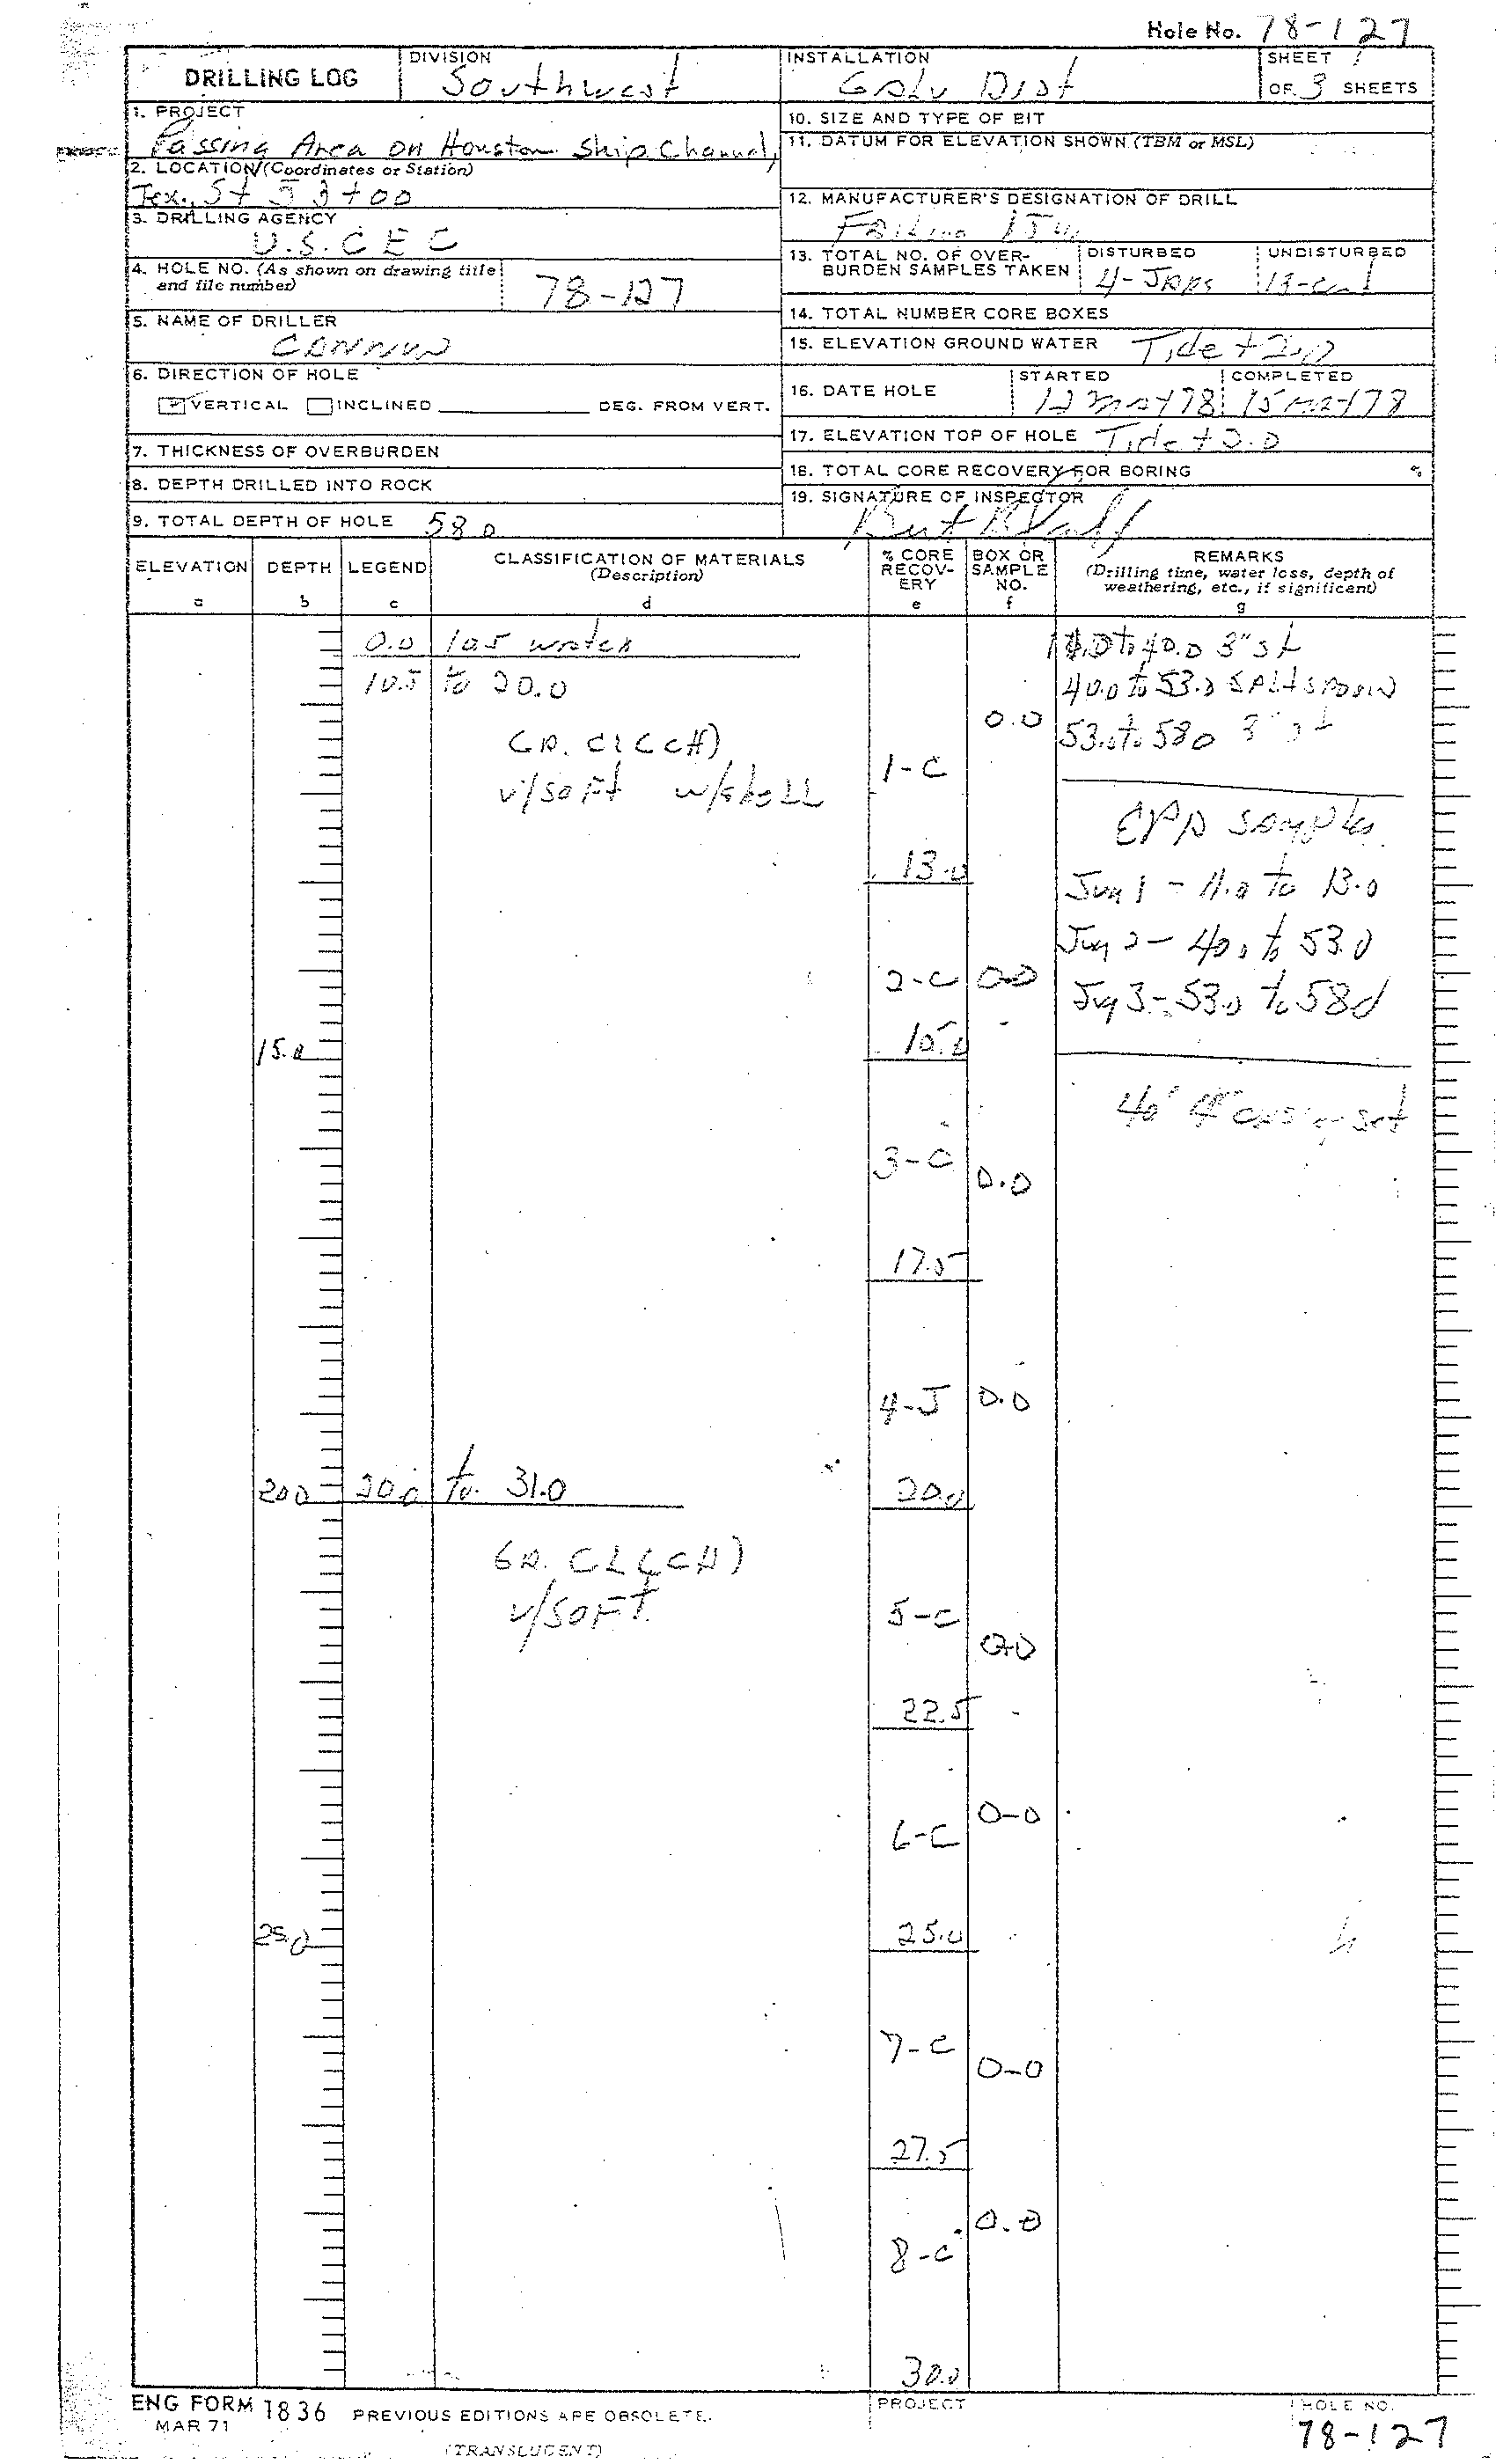 Hole No. 78-127
DRILLING LOG
DIVISION
Southwest
INSTALLATION
Galv Dist
SHEET 1
OF 3 SHEETS
1. PROJECT
Passing Area on Houston Ship Channel,
2. LOCATION (Coordinates or Station)
Tex. St 53+00
3. DRILLING AGENCY
U.S.C.E.C
4. HOLE NO. (As shown on drawing title
and file number)
78-127
5. NAME OF DRILLER
6. DIRECTION OF HOLE
VERTICAL INCLINED DEG. FROM VERT.
7. THICKNESS OF OVERBURDEN
8. DEPTH DRILLED INTO ROCK
9. TOTAL DEPTH OF HOLE 58.0
10. SIZE AND TYPE OF BIT
11. DATUM FOR ELEVATION SHOWN (TBM or MSL)
12. MANUFACTURER'S DESIGNATION OF DRILL
Failing
13. TOTAL NO. OF OVER-
BURDEN SAMPLES TAKEN
DISTURBED
4-Jars
UNDISTURBED
13-
14. TOTAL NUMBER CORE BOXES
15. ELEVATION GROUND WATER Tide + 2.0
16. DATE HOLE
STARTED
12 May 78
COMPLETED
15 May 78
17. ELEVATION TOP OF HOLE Tide + 2.0
18. TOTAL CORE RECOVERY FOR BORING %
19. SIGNATURE OF INSPECTOR
ELEVATION DEPTH LEGEND CLASSIFICATION OF MATERIALS (Description) % CORE RECOV-ERY BOX OR SAMPLE NO. REMARKS (Drilling time, water loss, depth of weathering, etc., if significant)
a b c d e f g
0.0 10.5 water
10.5 to 20.0
GR. CL (CH)
v/SOFT w/shell
11.0 to 40.0 3" st
40.0 to 53.0 split spoon
53.0 to 58.0 3" st
1-C 0.0
EPA samples
13.0
Jug 1 - 11.0 to 13.0
Jug 2 - 40.0 to 53.0
2-C 0.0
Jug 3 - 53.0 to 58.0
15.0 15.0
40' 4" casing set
3-C 0.0
17.5
4-J 0.0
20.0 20.0 to 31.0 20.0
GR. CL (CH)
v/SOFT.
5-C 0.0
22.5
6-C 0-0
25.0 25.0
7-C 0-0
27.5
8-C 0.0
30.0
ENG FORM 1836 PREVIOUS EDITIONS ARE OBSOLETE.
MAR 71
(TRANSLUCENT)
PROJECT
HOLE NO.
78-127